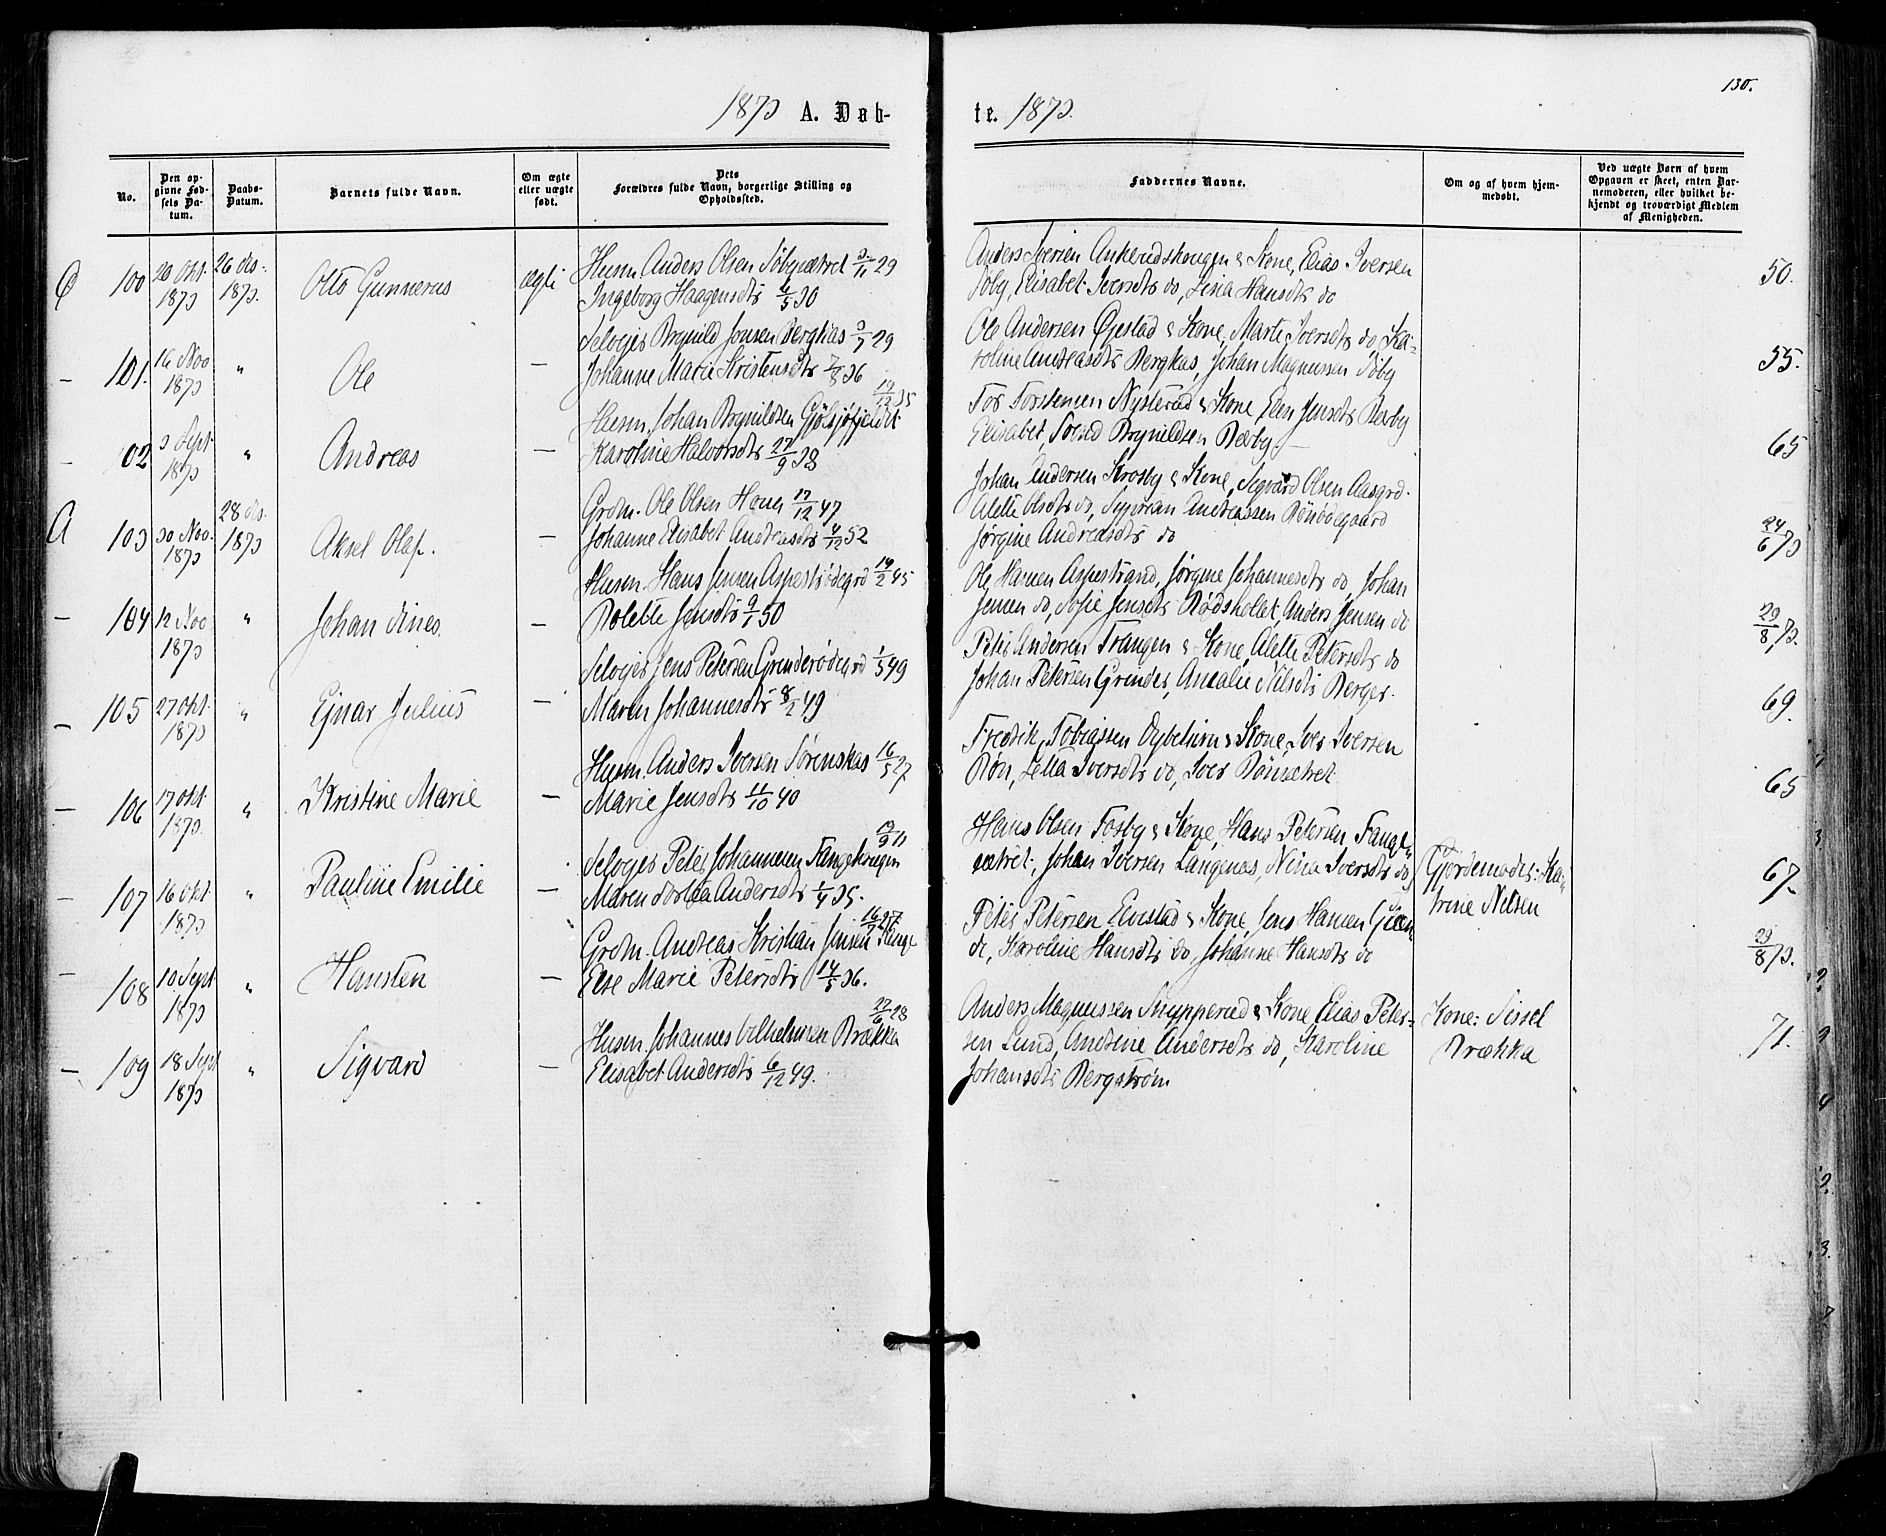 130.
1873 A. Døb-
te. 1873.
No.
Den op-
givne Fød-
sels Da-
tum.
Daabs-
Datum.
Barnets fulde Navn.
Om ægte
eller uægte
født.
Dets
Forældres fulde Navn, borgerlige Stilling og
Opholdssted.
Faddernes Navne.
Om og af hvem hjem-
medøbt.
Ved uægte Børn af hvem
Opgaven er skeet, enten Bar-
nemoderen, eller hvilket be-
kjendt og troværdigt Medlem
af Menigheden.
100 20 Okt. 1873 26 Des. 1873. Otto Gunnerus ægte
Husm. Anders Olsen Søbysætret 3/11 29
Ingeborg Haagensdtr 4/5 30
Anders Iversen Ankerudskougen & Kone, Elias Iversen
Søby, Elisabet Iversdtr do, Lina Hansdtr do
50.
101. 16 Nov 1873 " Ole —
Selvejer Brynild Jonsen Bergkas 3/7 29
Johanne Marie Kristensdtr 7/8 36
Ole Andersen Øjestad & Kone, Marte Iversdtr do, Ka-
roline Andreasdtr Bergkas, Johan Magnussen Søby
55.
102 3 Sept 1873 " Andreas —
Husm. Johan Brynildsen Gjølsjøfjeldet 19/12 35
Karoline Halvorsdtr 27/9 38
Tor Torstensen Nysterud & Kone, Elen Jensdtr Bærby
Elisabet, Brynildsen Bærby.
65
A 103 30 Nov. 1873 28 Des. 1873 Aksel Olaf. —
Grdm. Ole Olsen Houg 17/12 47
Johanne Elisabet Andreasdtr 4/12 52
Johan Andersen Krosby & Kone, Sigvard Olsen Aasgrd.
Alette Olsdtr do, Syprian Andreassen Rønødegaard
Jørgine Andreasdtr do
24/6 73
104 12 Nov 1873 " Johan Dines. —
Husm. Hans Jensen Aspestrødegrd 19/2 45
Bolette Jensdtr 9/1 50
Ole Hansen Aspestrand, Jørgine Johannesdtr do, Johan
Jensen do, Sofie Jensdtr Rødshollet, Anders Jensen do
29/8 73.
105 27 Okt. 1873 " Ejnar Julius —
Selvejer Jens Petersen Grenderødegrd 1/5 49
Maren Johannesdtr 8/2 49
Peter Andersen Trangen & Kone, Alette Petersdtr do
Johan Petersen Grender, Amalie Nilsdtr Berger.
69.
106 17 Okt. 1873. " Kristine Marie —
Husm. Anders Iversen Sørenskas 16/5 27
Marie Jensdtr 11/10 40
Fredrik Tobiassen & Kone, Iver Iversen
Røn, Iversdtr do, Iver Rønsætret
65
107 16 Okt 1873 " Pauline Emilie —
Selvejer Peter Johannesen Fangekrogen
Maren Dortea Andersdtr 1/4 35.
Hans Olsen Fosby & Kone, Hans Petersen Fange-
sætret, Johan Iversen Langenæs, Nina Iversdtr do
Gjordemoder: Ka-
trine Nilsen
67.
108 10 Sept 1873 " Hansten —
Grdm. Andreas Kristian Jensen
Else Marie Petersdtr 14/5 36.
Peter Petersen Evestad & Kone, Jens Hansen
de, Karoline Hansdtr do, Johanne Hansdtr do
29/8 73.
109 18 Sept 1873 " Sigvard —
Husm. Johannes Vilhelmsen Brækka 22/6 28
Elisabet Andersdtr 6/12 49.
Anders Magnussen Snupperud & Kone Elias Peter-
sen Lund, Andrine Andersdtr do, Karoline
Johansdtr Bergstrøm
Kone: Sissel
Brække
71.